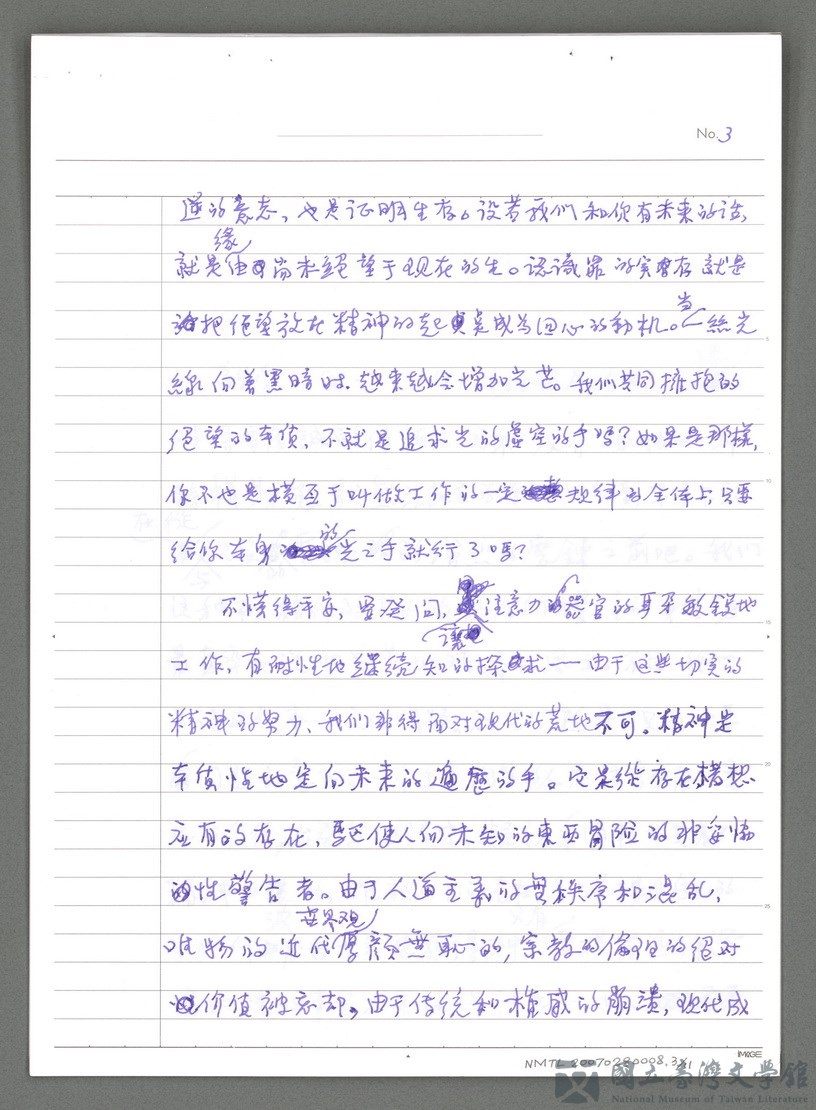 No. 3
逆的意志，也是证明生存。设若我们和你有未来的话，
缘
就是由尚未絕望于现在的生。認識罪的实存就是
把绝望放在精神的起奌成为回心的动机。当一絲光
線向着黑暗时，越来越会增加光芒。我们共同擁抱的
绝望的本质，不就是追求光的虛空的手嗎？如果是那樣，
你不也是横亘于叫做工作的一定规律的全体上，只要
给你本身的光之手就行了嗎？
不懂得平安，
讓注意力器官的耳朵敏銳地
工作，有耐性地继续知的探求——由于这些切实的
精神的努力，我们非得面对现代的荒地不可。精神是
本质性地定向未来的遍歷的手。它是從存在構想
应有的存在，駆使人向未知的東西冒险的非妥协
性警告者。由于人道主義的無秩序和混乱，
世界观
唯物的近代厚颜無恥的，宗教的倫理的绝对
价值被忘却。由于传统和権威的崩潰，现代成
IMAGE
NMTL 20070280008.3
國立臺灣文學館
National Museum of Taiwan Literature